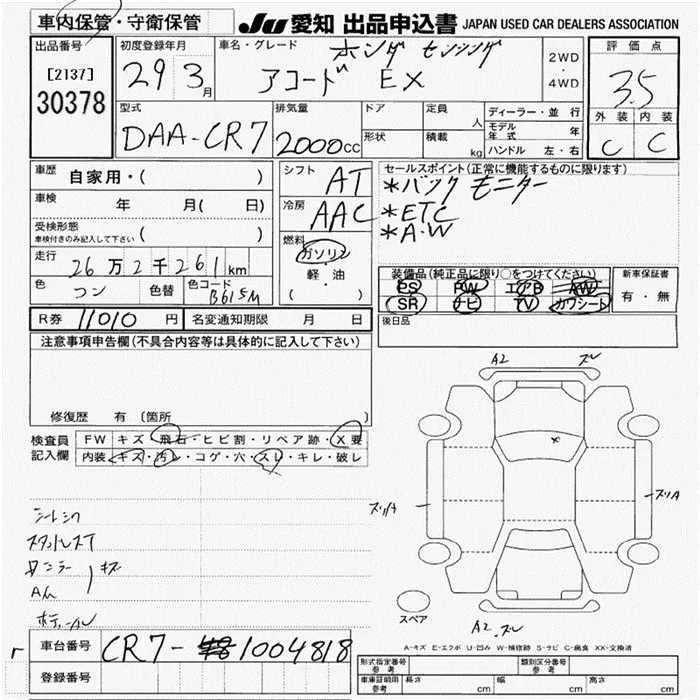 車内保管・守衛保管
JU 愛知 出品申込書 JAPAN USED CAR DEALERS ASSOCIATION
出品番号
[2137]
30378
初度登録年月
29 3月
車名・グレード
ホンダ センシング
アコード EX
2WD
・
4WD
評価点
3.5
外装 内装
C C
型式
DAA-CR7
排気量
2000cc
ドア
形状
定員 人
積載 kg
ディーラー・並行
モデル年式 年
ハンドル 左・右
車歴
自家用・( )
車検
年 月( 日)
受検形態
車検付きのみ記入して下さい ( )
走行
26万2千261km
色
コン
色替
色コード
B615M
シフト
AT
冷房
AAC
燃料
ガソリン
・
軽・油
( )
セールスポイント(正常に機能するものに限ります)
*バックモニター
*ETC
*A・W
装備品(純正品に限り○をつけてください)
PS PW エアB AW
SR ナビ TV カワシート
新車保証書
有・無
後日品
R券 11010円
名変通知期限 月 日
注意事項申告欄(不具合内容等は具体的に記入して下さい)
修復歴 有 〔箇所 〕
検査員記入欄
FW キズ・飛石・ヒビ割・リペア跡・X要
内装 キズ・汚レ・コゲ・穴・スレ・キレ・破レ
A2 スレ
x
スリA
A2.スレ
スペア
A-キズ E-エクボ U-凹み W-補修跡 S-サビ C-腐食 XX-交換済
車台番号
CR7-1004818
登録番号
型式指定番号
参考
類別区分番号
参考
車庫証明用
参考
長さ cm
幅 cm
高さ cm